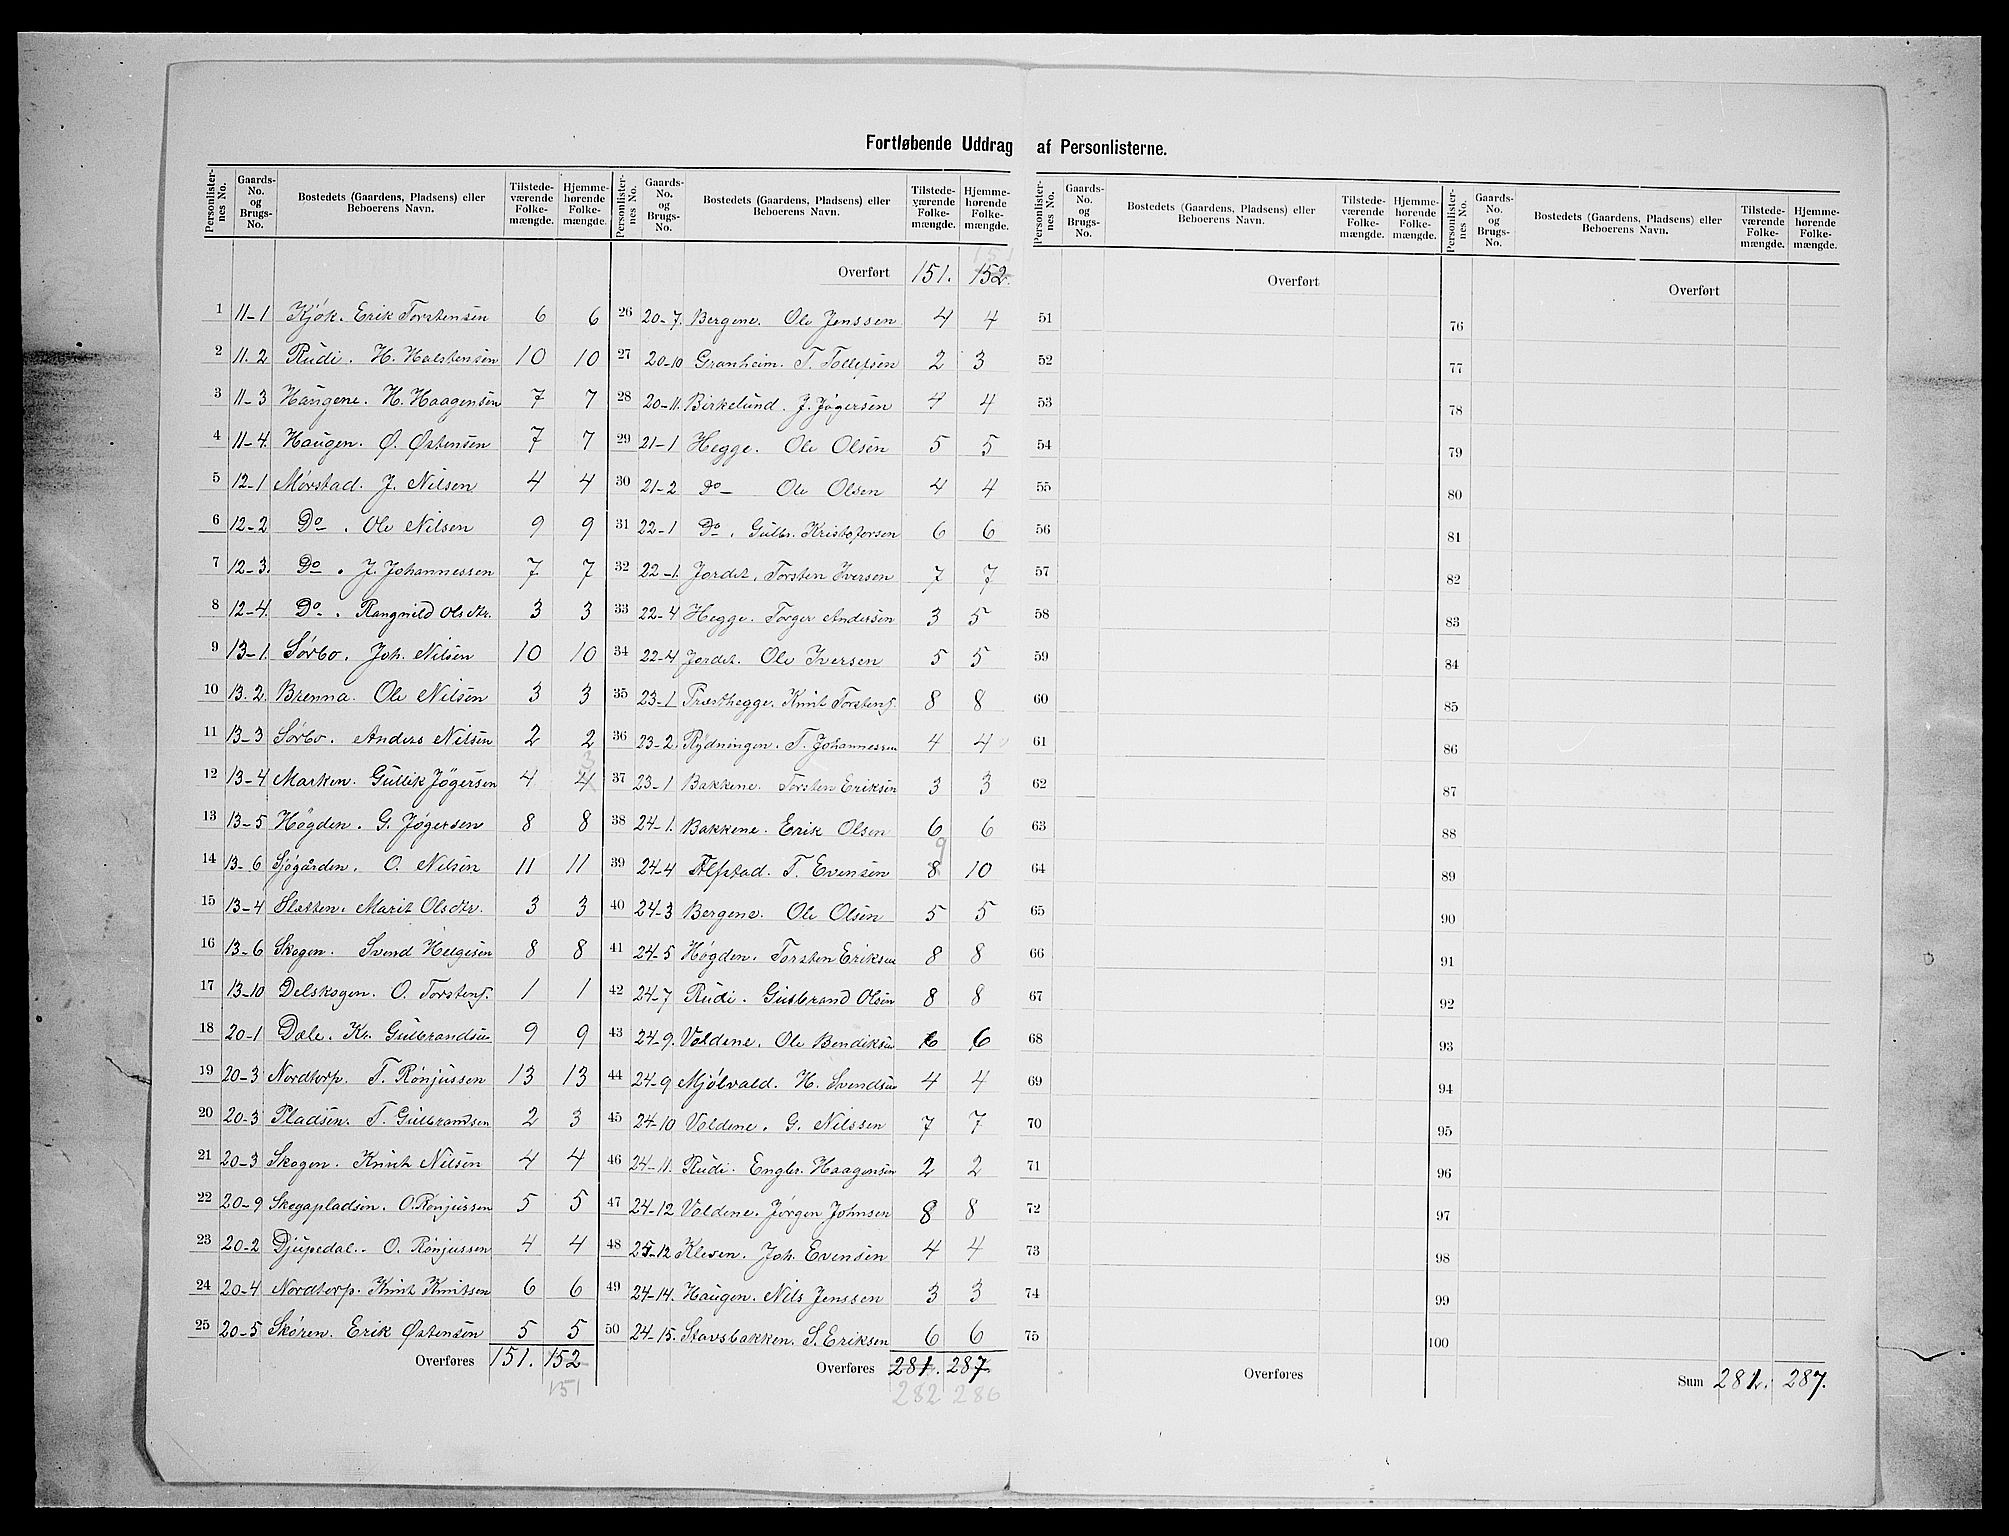 Fortløbende Uddrag af Personlisterne.
Personlisternes No. Gaards-No. og Brugs-No. Bostedets (Gaardens, Pladsens) eller Beboerens Navn. Tilstedeværende Folkemængde. Hjemmehørende Folkemængde.
1 11-1 Kjøk. Erik Torstensen 6 6
2 11.2 Rudi. H. Halstensen 10 10
3 11-3 Haugene. H. Haagensen 7 7
4 11-4. Haugen. Ø. Østensen 7 7
5 12-1 Mørstad. J. Nilsen 4 4
6 12-2 Do. Ole Nilsen 9 9
7 12-3. Do. J. Johannessen 7 7
8 12-4. Do. Rangnild Olsdtr. 3 3
9 13-1. Sørbo. Joh. Nilsen 10 10
10 13.2 Brenna. Ole Nilsen 3 3
11 13-3 Sørbo. Anders Nilsen 2 2
12 13-4 Marken. Gullik Jøgersen 4 4 3
13 13-5 Høgden. G. Jøgersen 8 8
14 13-6 Sjøgården. O. Nilsen 11 11
15 13-4 Sletten. Marit Olsdtr. 3 3
16 13-6 Skogen. Svend Helgesen 8 8
17 13-10 Delskogen. O. Torstens. 1 1
18 20-1 Dæle. Kr. Gulbrandsen 9 9
19 20-3 Nordtorp. T. Rønjussen 13 13
20 20-3 Pladsen. T. Gulbrandsen 2 3
21 20-3 Skogen. Knut Nilsen 4 4
22 20-9 Skogapladsen. O. Rønjussen 5 5
23 20-2 Djupedal. O. Rønjussen 4 4
24 20-4 Nordtorp. Knut Knutsen 6 6
25 20-5 Skøren. Erik Østensen 5 5
Overføres 151. 152
151
Personlisternes No. Gaards-No. og Brugs-No. Bostedets (Gaardens, Pladsens) eller Beboerens Navn. Tilstedeværende Folkemængde. Hjemmehørende Folkemængde.
151
Overført 151. 152.
26 20-7. Bergene. Ole Jenssen 4 4
27 20-10 Granheim. T. Tollefsen 2 3
28 20-11. Birkelund. J. Jøgersen 4 4
29 21-1 Hegge. Ole Olsen 5 5
30 21-2 Do Ole Olsen 4 4
31 22-1 Do. Gulbr. Kristofersen 6 6
32 22-1. Jordet. Torsten Iversen 7 7
33 22-4 Hegge. Torger Andersen 3 5
34 22-4 Jordet. Ole Iversen 5 5
35 23-1 Præsthegge. Knut Torstens. 8 8
36 23-2. Rydningen. T. Johannessen 4 4
37 23-1 Bakkene. Torsten Eriksen 3 3
38 24-1. Bakkene. Erik Olsen 6 6
39 24-4 Alfstad. T. Evensen 8 9 10
40 24-3 Bergene. Ole Olsen 5 5
41 24-5 Høgden. Torsten Eriksen 8 8
42 24-7 Rudi. Gulbrand Olsen 8 8
43 24-9. Voldene. Ole Bendiksen 6 6
44 24-9 Mjølvald. H. Svendsen 4 4
45 24-10 Voldene. G. Nilssen 7 7
46 24-11. Rudi. Engbr. Haagensen 2 2
47 24-12 Voldene. Jørgen Johnsen 8 8
48 25-12 Kleven. Joh. Evensen 4 4
49 24-14. Haugen. Nils Jenssen 3 3
50 24-15. Stavsbakken. S. Eriksen 6 6
Overføres 281. 287.
282 286
Personlisternes No. Gaards-No. og Brugs-No. Bostedets (Gaardens, Pladsens) eller Beboerens Navn. Tilstedeværende Folkemængde. Hjemmehørende Folkemængde.
Overført
51
52
53
54
55
56
57
58
59
60
61
62
63
64
65
66
67
68
69
70
71
72
73
74
75
Overføres
Personlisternes No. Gaards-No. og Brugs-No. Bostedets (Gaardens, Pladsens) eller Beboerens Navn. Tilstedeværende Folkemængde. Hjemmehørende Folkemængde.
Overført
76
77
78
79
80
81
82
83
84
85
86
87
88
89
90
91
92
93
94
95
96
97
98
99
100
Sum 281. 287.